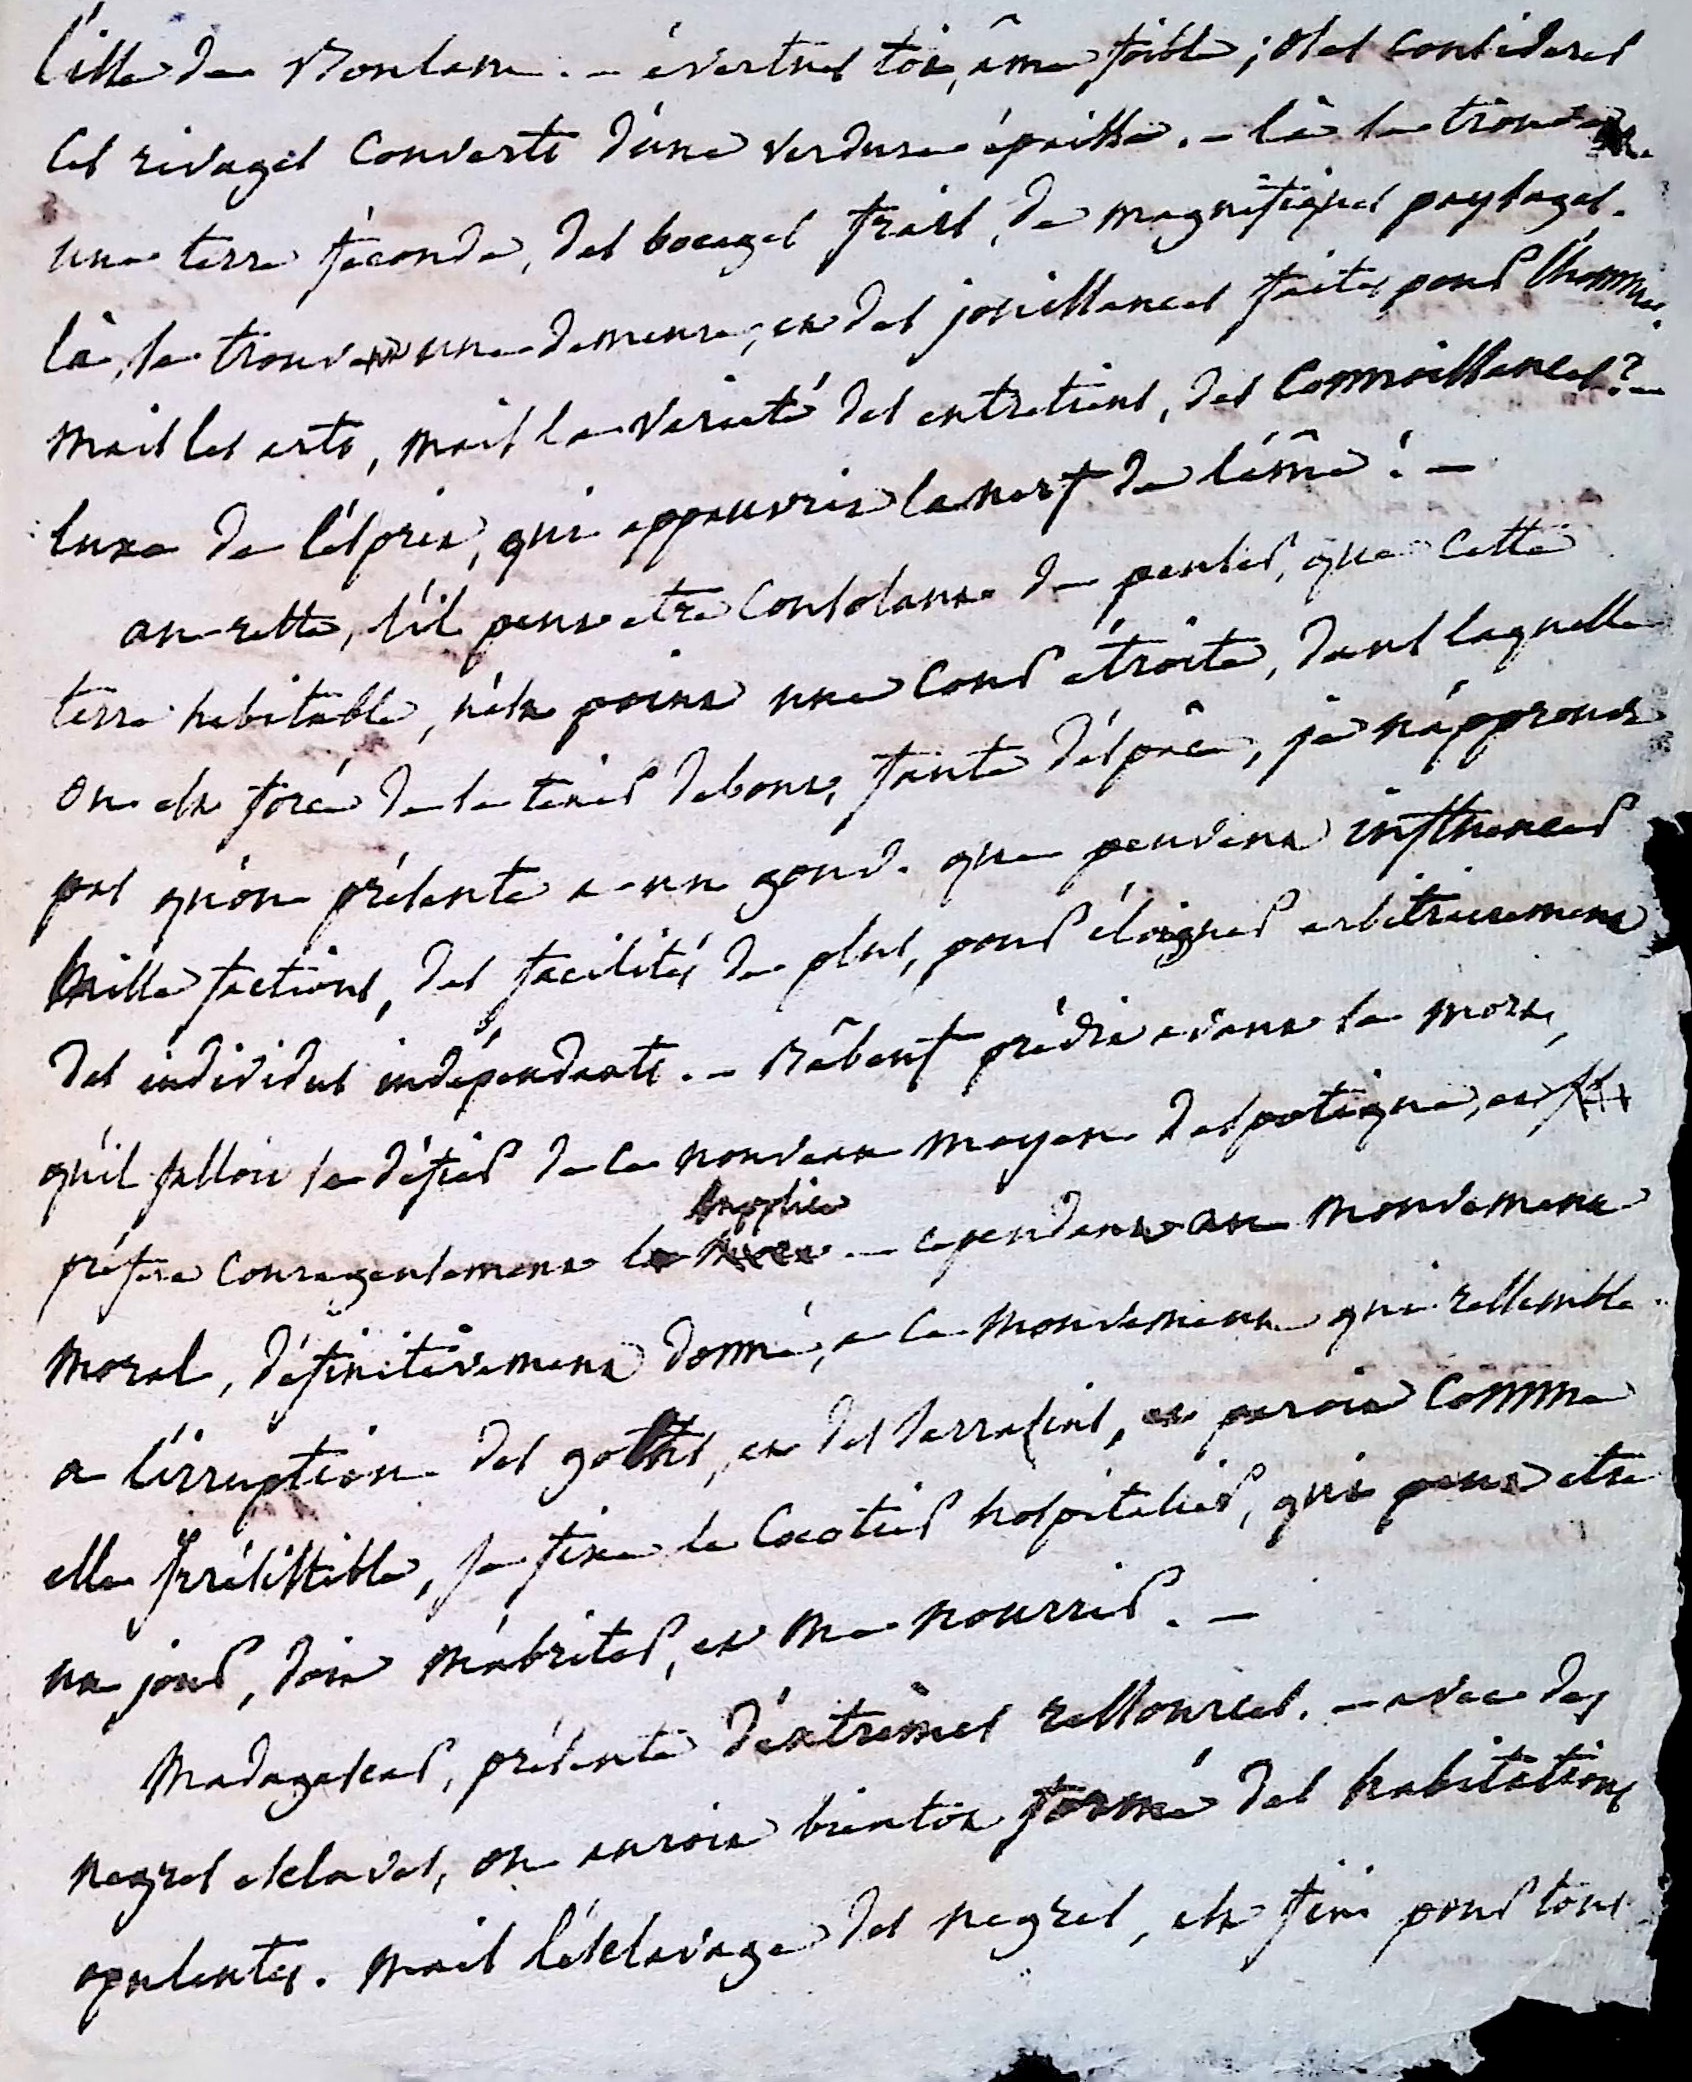 l'isle de Bonbam. – évertues toi, âme foible ; oses considerer
ces rivages couverts d'une verdure épaisse. – là se trouve
une terre féconde, des bocages frais, de magnifiques paysages.
là, se trouve une demeure, et des jouissances faites pour l'homme.
mais les arts, mais la varieté des entretiens, des connoissances ? –
luxe de l'esprit, qui appauvrit le nerf de l'âme ! –
au reste, s'il peut etre consolant de penser, que cette
terre habitable, n'est point une cour étroite, dans laquelle
on est forcé de se tenir debout, faute d'espâce, je n'approuve
pas qu'on présente a un gouv. que peuvent influencer
mille factions, des facilités de plus, pour éloigner arbitrairement
des individus indépendants. – Bâbeuf prédit avant sa mort,
qu'il falloit se défier de ce nouveau moyen despotique, et
préfera courageusement le supplice – cependant au mouvement
moral, définitivement donné, a ce mouvement qui ressemble
a l'irruption des goths, et des sarrasins, et paroit comme
elle irrésistible, je fixe le cocotier hospitalier, qui peut etre
un jour, doit m'abriter, et me nourrir. –
Madagascar, présente d'extrêmes ressources. – avec des
negres esclaves, on auroit bientot formé des habitations
opulentes. mais l'esclavage des negres, est fini pour tous